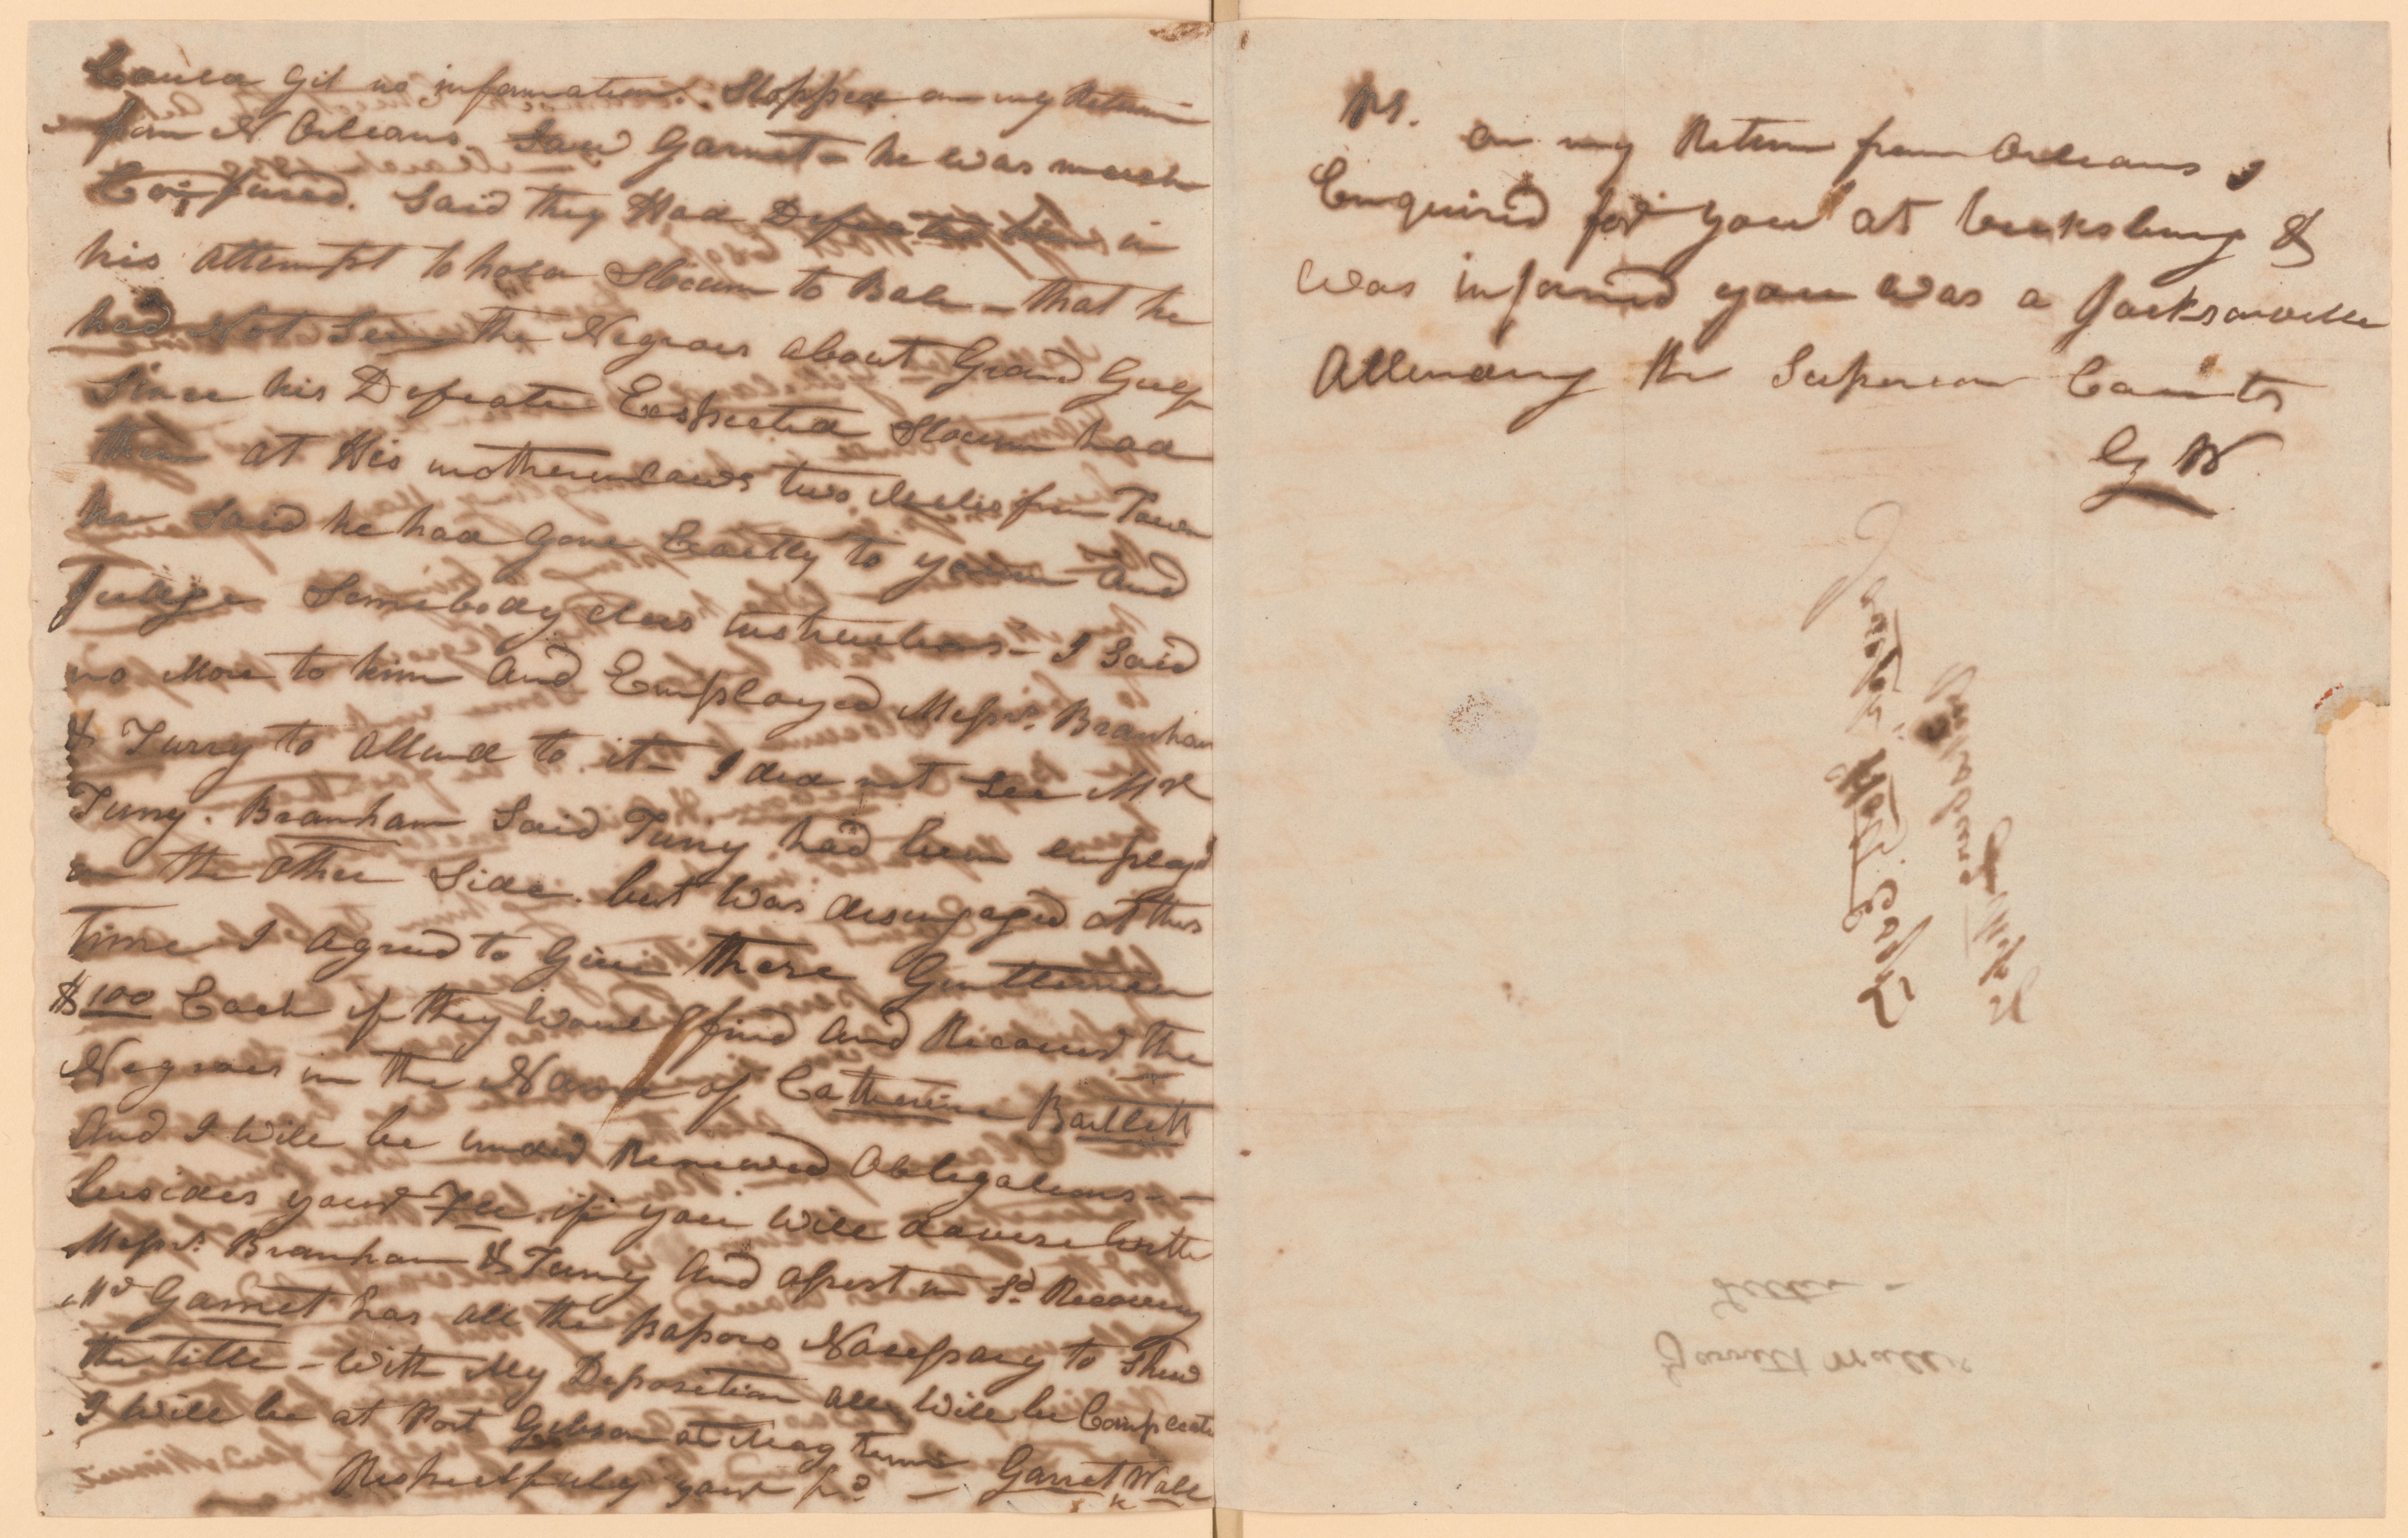 Could git no information. Stopped on my Return
from N Orleans. Saw Garnet - he was much
Confused. Said they Had Defeated him in
his attempt to hold Slocum to Bale - that he
had Not Seen the Negroes about Grand Gulf
Since his Defeate Exspected Slocum had
them at His motherinlaws two Miles from Town
he Said he had gone Exactly to your and
Judge Somebody elces instructions - I Said
no More to him and Employed Messrs. Branham
& Turry to attend to it - I did not See Mr
Turry. Branham Said Turry had been employd
on the other Side. but was disengaged at this
time I agreed to Give these Gentlemen
$100 Each if they would find and Recover the
Negroes in the Name of Catherine Bartlett
And I will be under Renewed Obligations -
besides your Fee, if you will advise with
Messrs. Branham & Turry And assist in Sd. Recovery
Mr Garnet has all the papers Nacessary to Shew
the title - with My Deposetion all will be Compleate
I will be at Port Gibson at May term
Respectfully your frd. - Garret Wall
PS. on my Return from Orleans I
Enquired for you at Vicksburg &
was informd you was a Jacksonville
Attending the Superior Courts
G W
Joseph Holt Esqr.
Vicksburg Missi
Garrett Wall's
Letter -